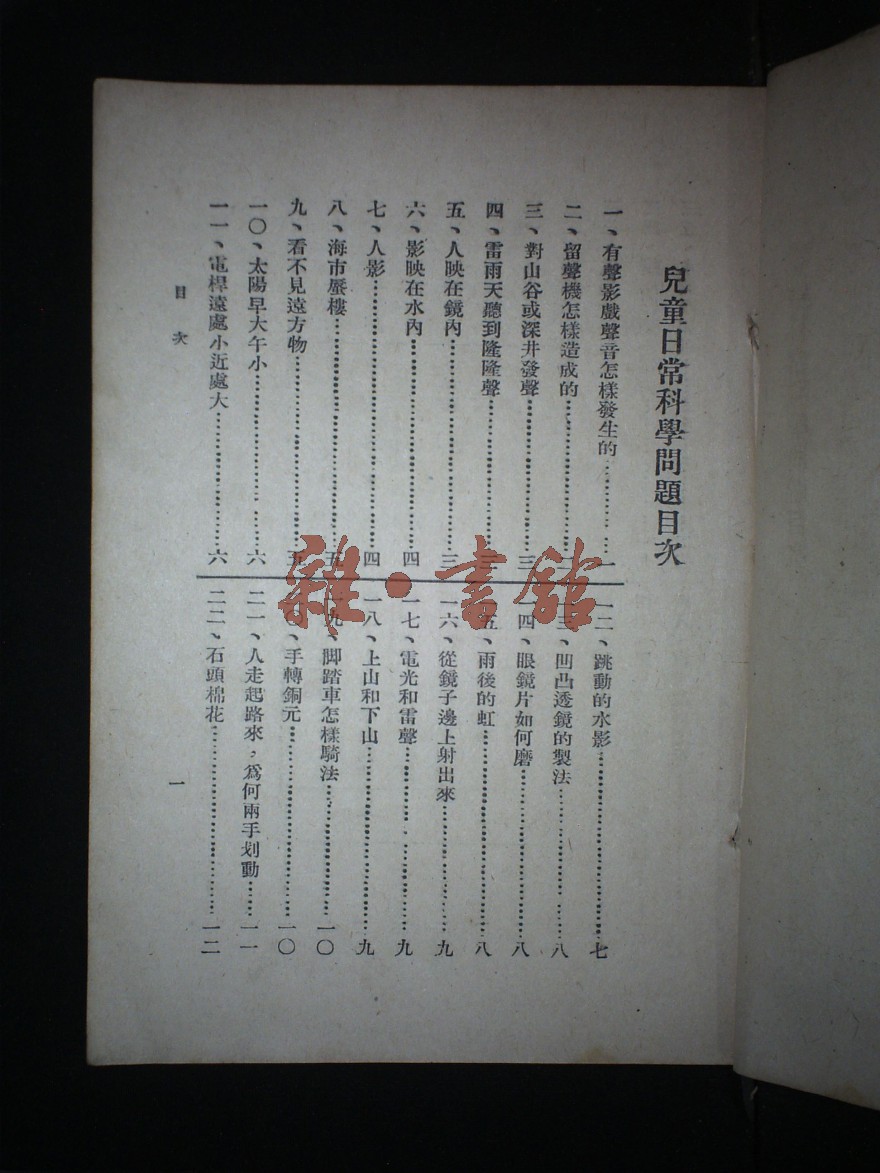 兒童日常科學問題目次
一、有聲影戲聲音怎樣發生的…………一
二、留聲機怎樣造成的…………
三、對山谷或深井發聲…………三
四、雷雨天聽到隆隆聲…………三
五、人映在鏡內…………三
六、影映在水內…………四
七、人影…………四
八、海市蜃樓…………五
九、看不見遠方物…………五
一〇、太陽早大午小…………六
一一、電桿遠處小近處大…………六
一二、跳動的水影…………七
一三、凹凸透鏡的製法…………八
一四、眼鏡片如何磨…………八
一五、雨後的虹…………八
一六、從鏡子邊上射出來…………九
一七、電光和雷聲…………九
一八、上山和下山…………九
一九、脚踏車怎樣騎法…………一〇
二〇、手轉銅元…………一〇
二一、人走起路來，爲何兩手划動…………一一
二二、石頭棉花…………一二
目次
一
雜·書館